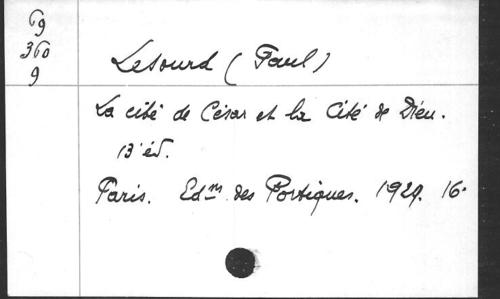 69
360
9
Lesourd (Paul)
La cité de César et la Cité de Dieu.
13ᵉ éd.
Paris. Edᵒⁿˢ des Portiques. 1929. 16°